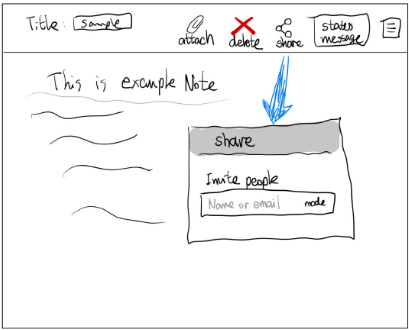 Title: sample
attach delete share
status message
This is example Note
share
Invite people
Name or email mode